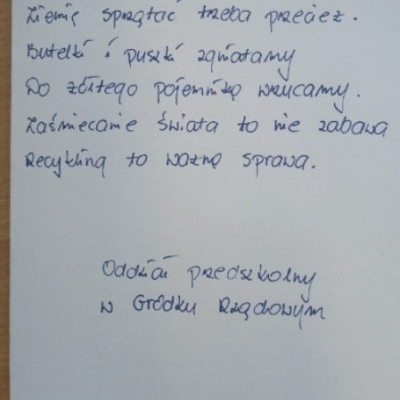 Ziemię sprzątać trzeba przecież.
Butelki i puszki zgniatamy
Do żółtego pojemnika wrzucamy.
Zaśmiecanie świata to nie zabawa
Recykling to ważna sprawa.
Oddział przedszkolny
w Gródku Rządowym